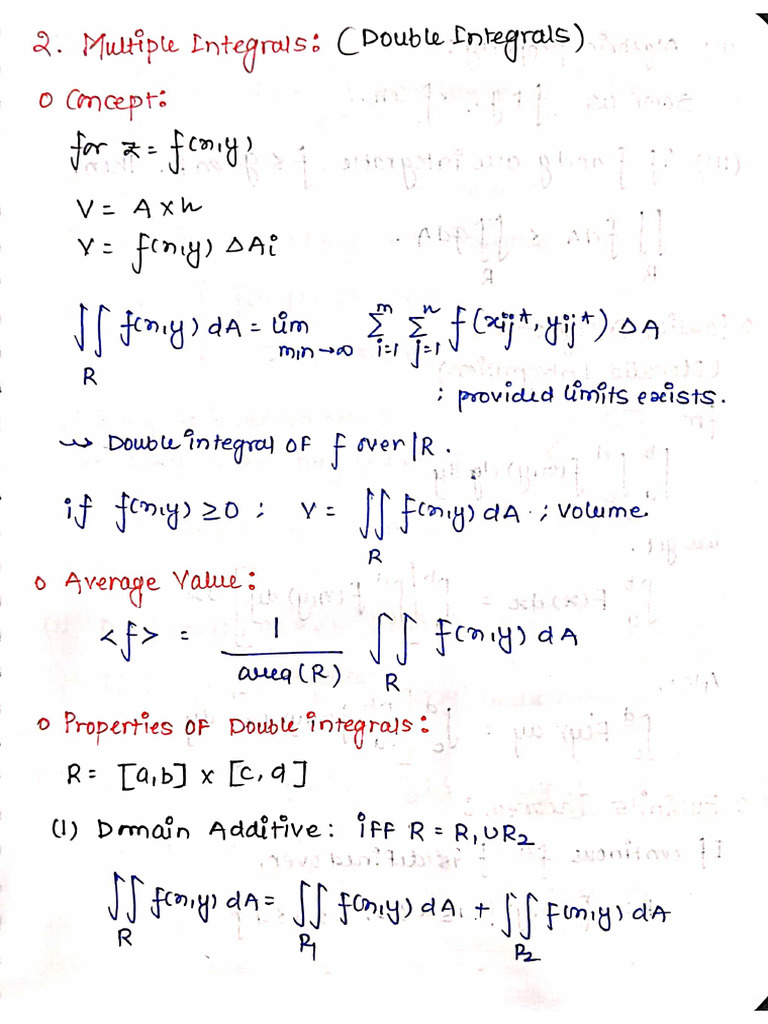 2. Multiple Integrals: (Double Integrals)
o Concept:
for z = f(x,y)
V = A x h
V = f(x,y) ΔAi
∬ f(x,y) dA = lim Σ Σ f(xij*, yij*) ΔA
R m,n→∞ i=1 j=1 m n
; provided limits exists.
↝ Double integral of f over R.
if f(x,y) ≥ 0 ; V = ∬ f(x,y) dA ; Volume
R
o Average Value:
<f> = 1 ∬ f(x,y) dA
area(R) R
o Properties of Double integrals:
R = [a,b] x [c,d]
(1) Domain Additive: iff R = R1 ∪ R2
∬ f(x,y) dA = ∬ f(x,y) dA + ∬ f(x,y) dA
R R1 R2